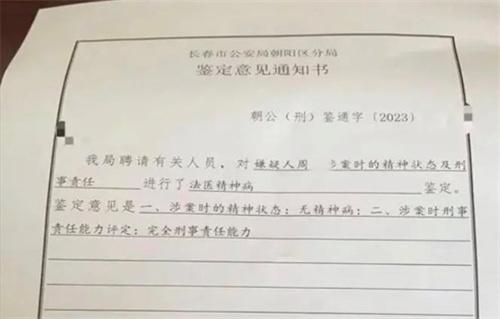 长春市公安局朝阳区分局
鉴定意见通知书
朝公（刑）鉴通字〔2023〕
我局聘请有关人员，对 嫌疑人周 涉案时的精神状态及刑
事责任 进行了 法医精神病 鉴定。
鉴定意见是 一、涉案时的精神状态：无精神病；二、涉案时刑事
责任能力评定：完全刑事责任能力